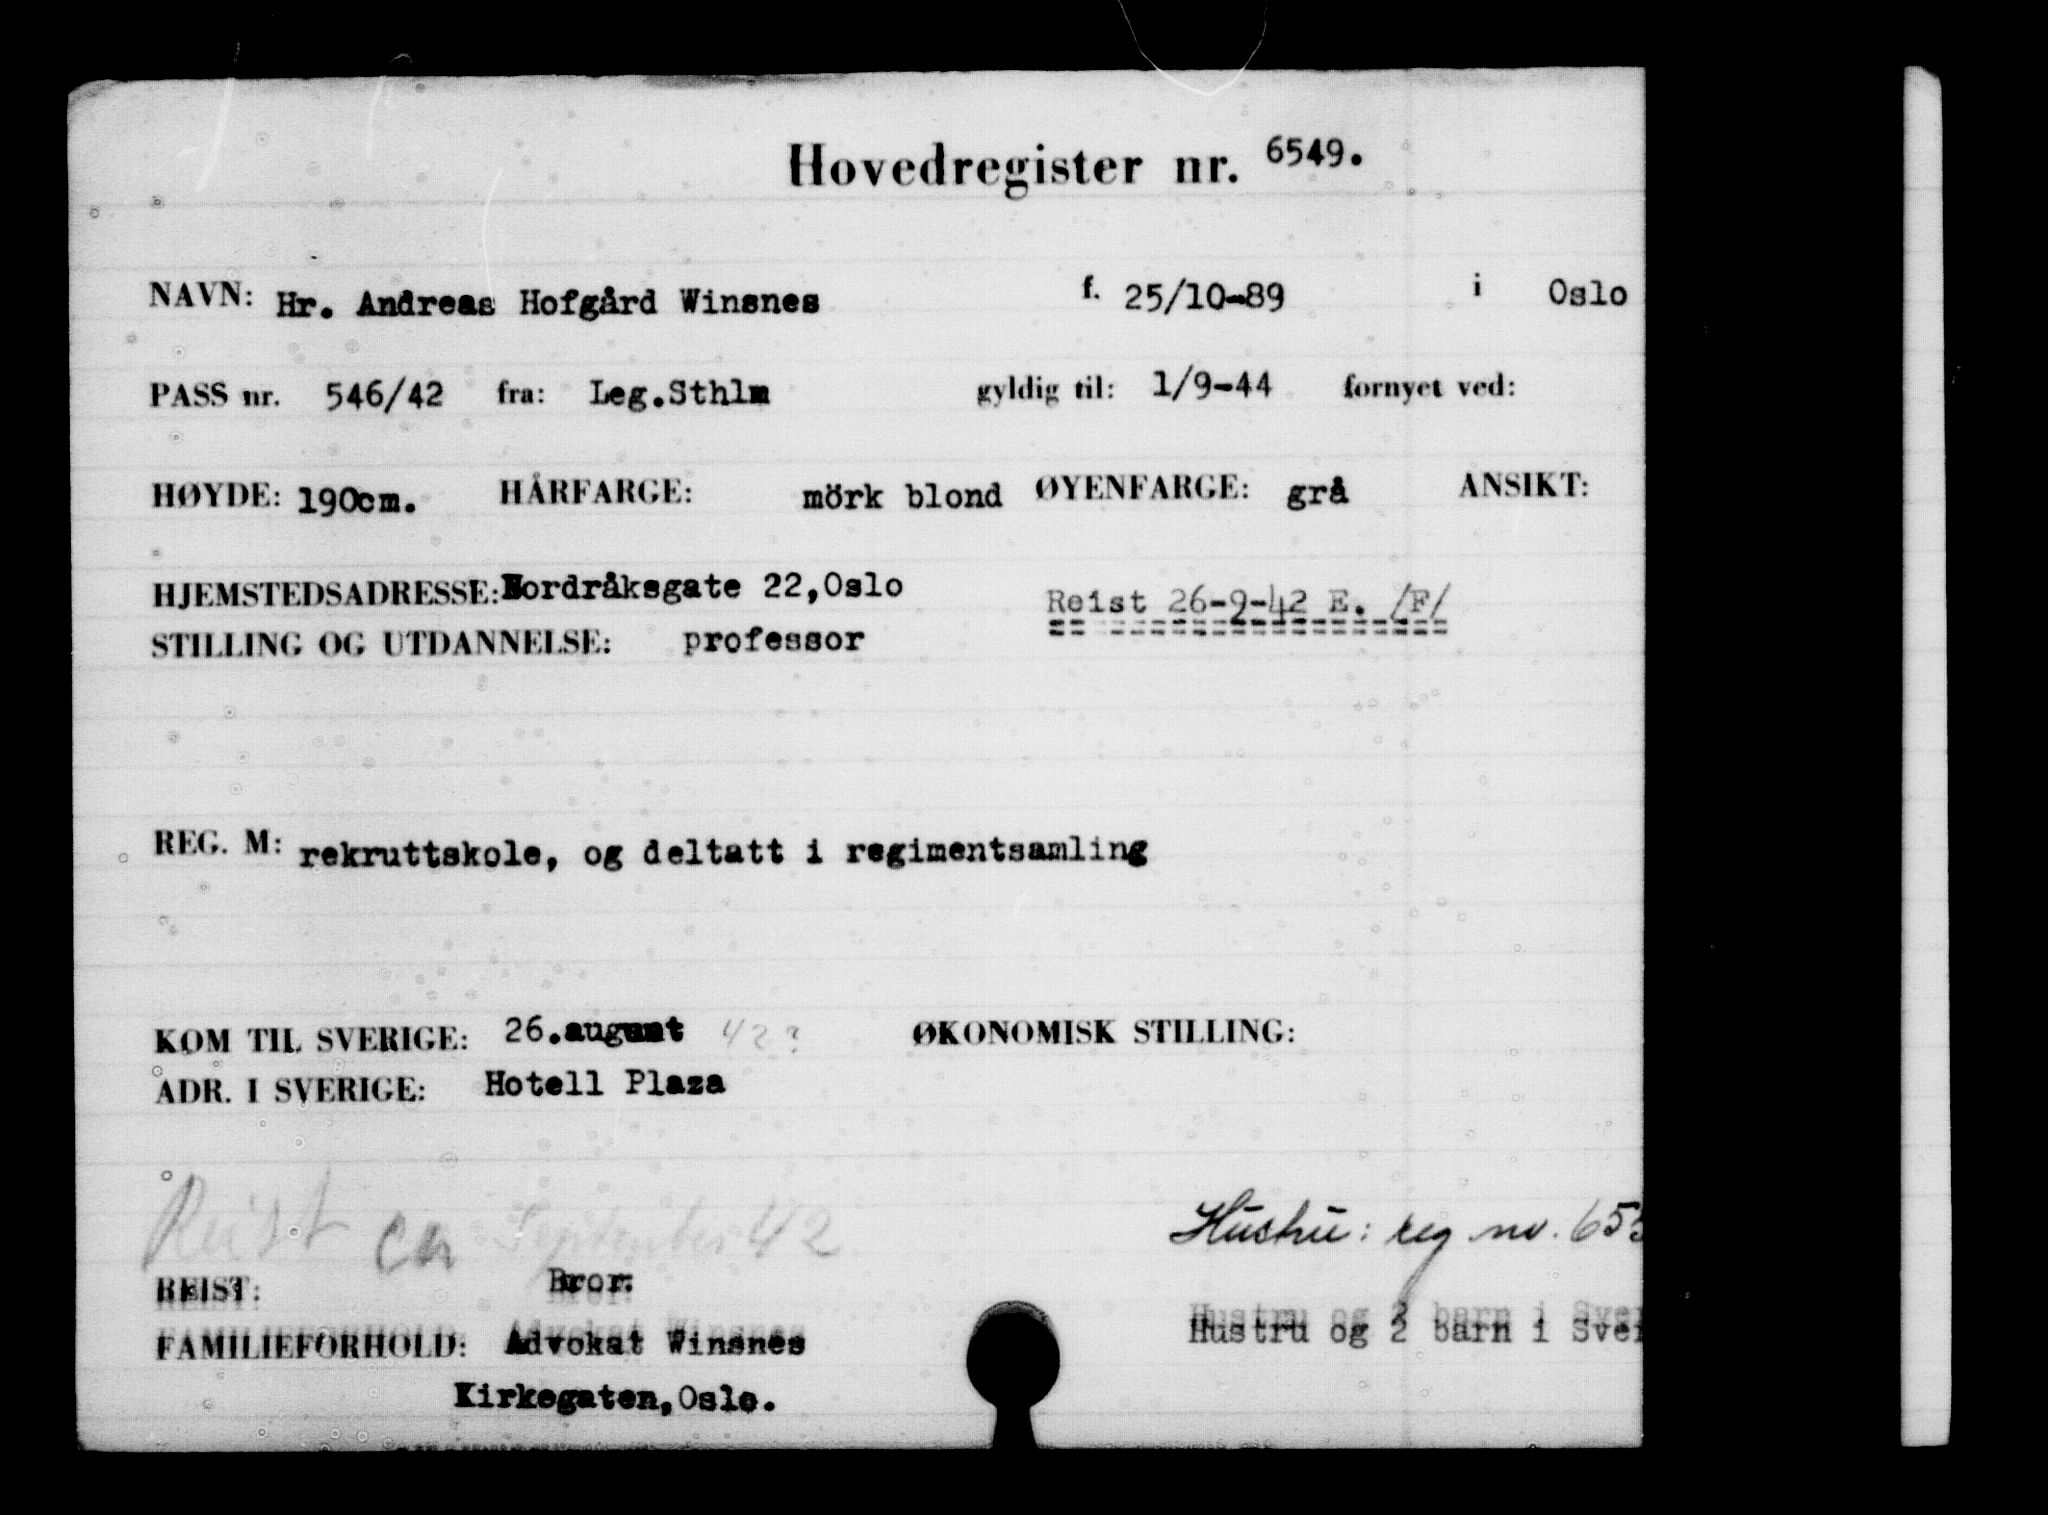 Hovedregister nr. 6549.
NAVN: Hr. Andreas Hofgård Winsnes f. 25/10-89 i Oslo
PASS nr. 546/42 fra: Leg.Sthlm gyldig til: 1/9-44 fornyet ved:
HØYDE: 190cm. HÅRFARGE: mörk blond ØYENFARGE: grå ANSIKT:
HJEMSTEDSADRESSE: Nordråksgate 22,Oslo Reist 26-9-42 E. /F/
STILLING OG UTDANNELSE: professor
REG. M: rekruttskole, og deltatt i regimentsamling
KOM TIL SVERIGE: 26.august 42? ØKONOMISK STILLING:
ADR. I SVERIGE: Hotell Plaza
Reist ca September 42 Hustru: reg nr. 655
REIST: Bror:
FAMILIEFORHOLD: Advokat Winsnes Hustru og 2 barn i Sver
Kirkegaten,Oslo.